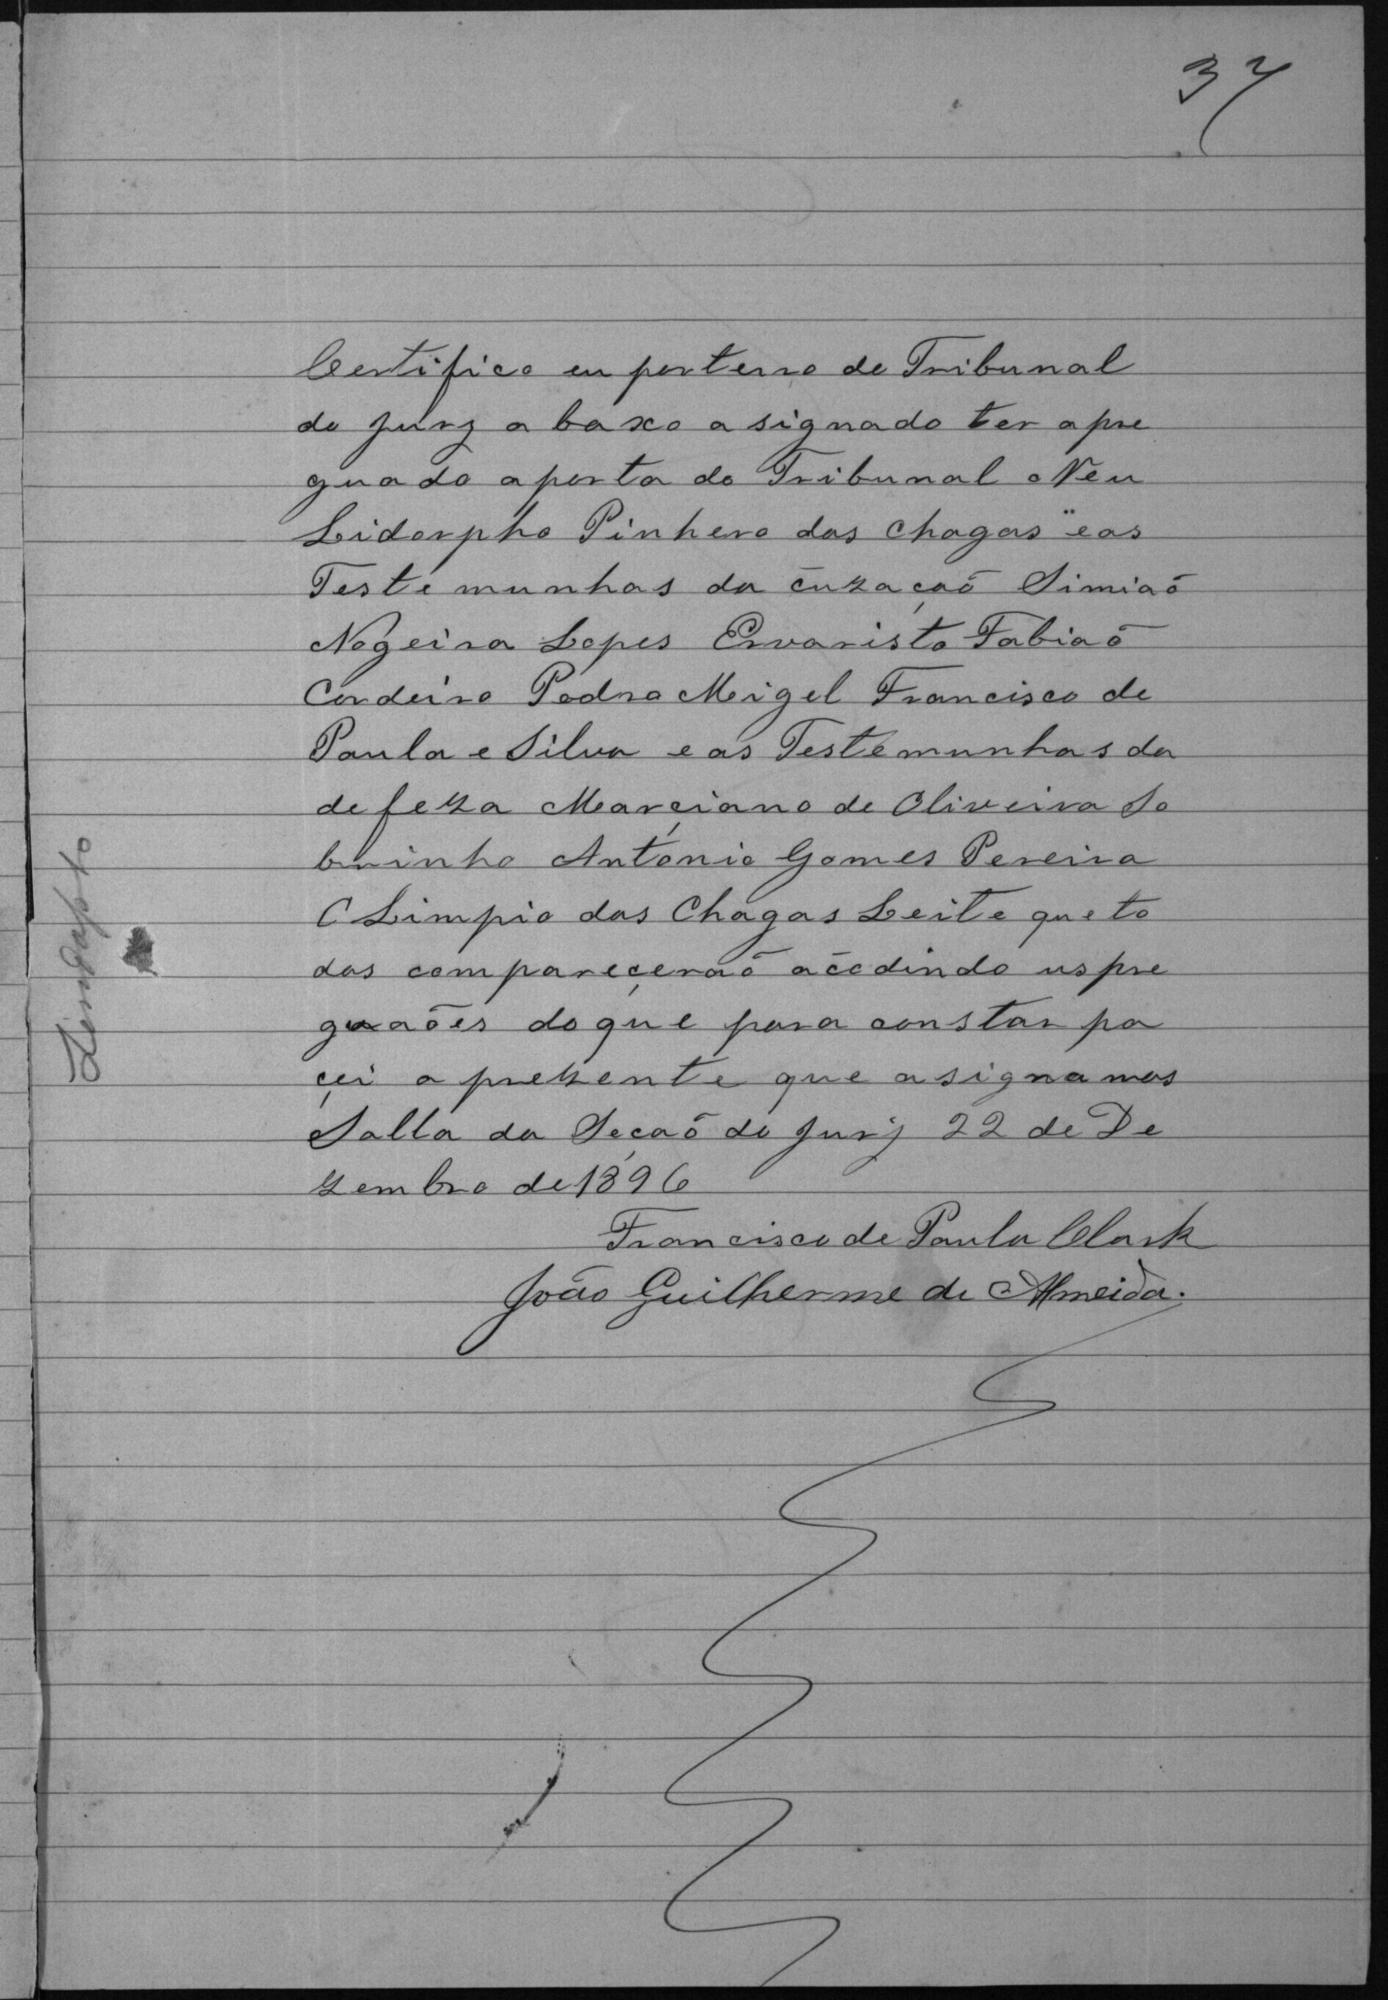 37
Certifico eu porteiro do Tribunal
do jury a baxo a signado ter apre
guado a porta do Tribunal o Reu
Lidorpho Pinhero das Chagas e as
Teste munhas da cuzação Simiaõ
Nogeira Lopes Ervaristo Fabiaõ
Cordeiro Pedro Migel Francisco de
Paula e Silva e as Testemunhas da
defeza Marciano de Oliveira So
brinho Antonio Gomes Pereira
OLimpio das Chagas Leite que to
das compareçeraõ acodindo us pre
guaões do que para constar pa
çei a prezente que asignamos
Salla da Seçaõ do jury 22 de De
zembro de 1896
Francisco de Paula Clark
João Guilherme de Almeida.